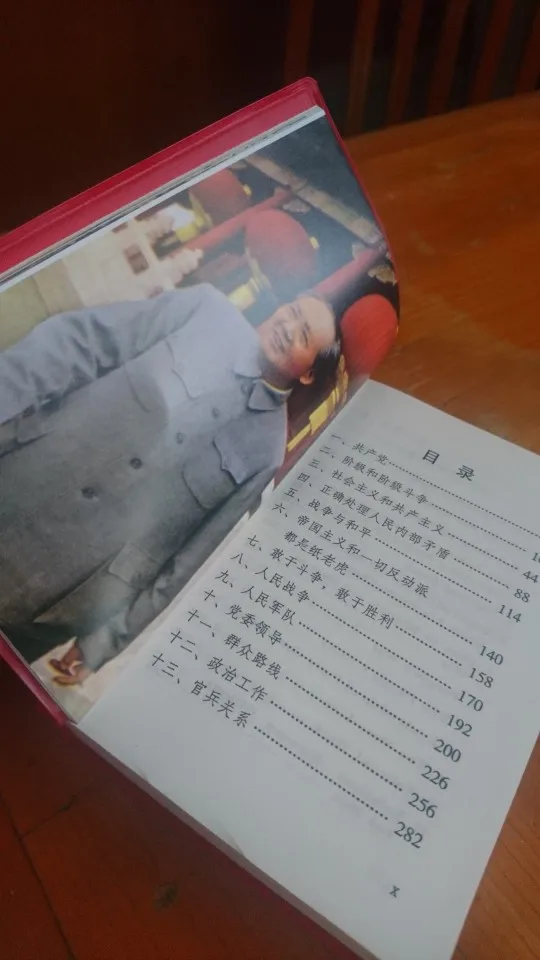 目 录
一、共产党……………
二、阶级和阶级斗争……………
三、社会主义和共产主义……………44
四、正确处理人民内部矛盾……………88
五、战争与和平……………114
六、帝国主义和一切反动派
都是纸老虎……………140
七、敢于斗争，敢于胜利……………158
八、人民战争……………170
九、人民军队……………192
十、党委领导……………200
十一、群众路线……………226
十二、政治工作……………256
十三、官兵关系……………282
X